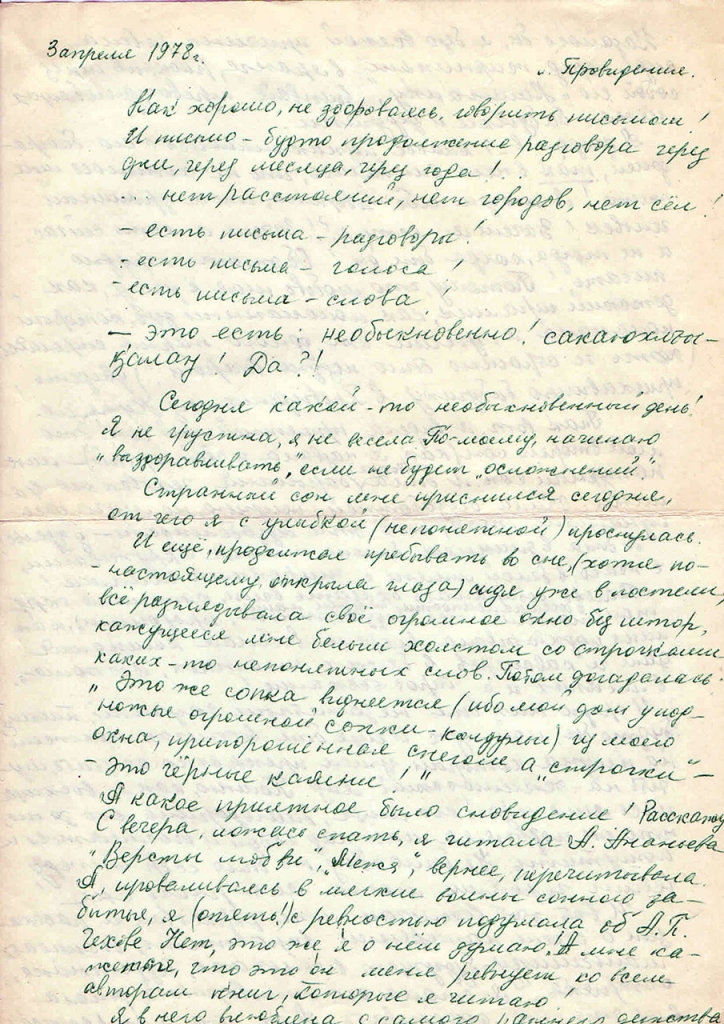 3 апреля 1978 г.
п. Провидения.
Как хорошо, не здороваясь, говорить письмом!
И письмо – будто продолжение разговора через
дни, через месяцы, через года!
... нет расстояний, нет городов, нет сёл!
– есть письма – разговоры!
– есть письма – голоса!
– есть письма – слова!
– это есть: необыкновенно!
Да?!
Сегодня какой-то необыкновенный день!
Я не грустна, я не весела. По-моему, начинаю
„выздоравливать“, если не будет „осложнений“.
Странный сон мне приснился сегодня,
от чего я с улыбкой (непонятной) проснулась.
И ещё, продолжая пребывать во сне, (хотя по-
настоящему, открыла глаза) сидя уже в постели,
всё разглядывала своё огромное окно без штор,
кажущееся мне белым холстом со строчками
каких-то непонятных слов. Потом догадалась:
„Это же сопка виднеется (ибо мой дом у под-
ножье огромной сопки-колдуньи) из моего
окна, припорошенная снегом, а „строчки“ –
– это чёрные камни!“
А какое приятное было сновидение! Расскажу
С вечера, ложась спать, я читала А. Ананьева
„Версты любви“, „Межа“, вернее, перечитывала.
А, проваливаясь в мягкие волны сонного за-
бытья, я (опять!) с ревностью подумала об А.П.
Чехове. Нет, это же я о нём думаю! А мне ка-
жется, что это он меня ревнует ко всем
авторам книг, которые я читаю!
Я в него влюблена с самого раннего детства